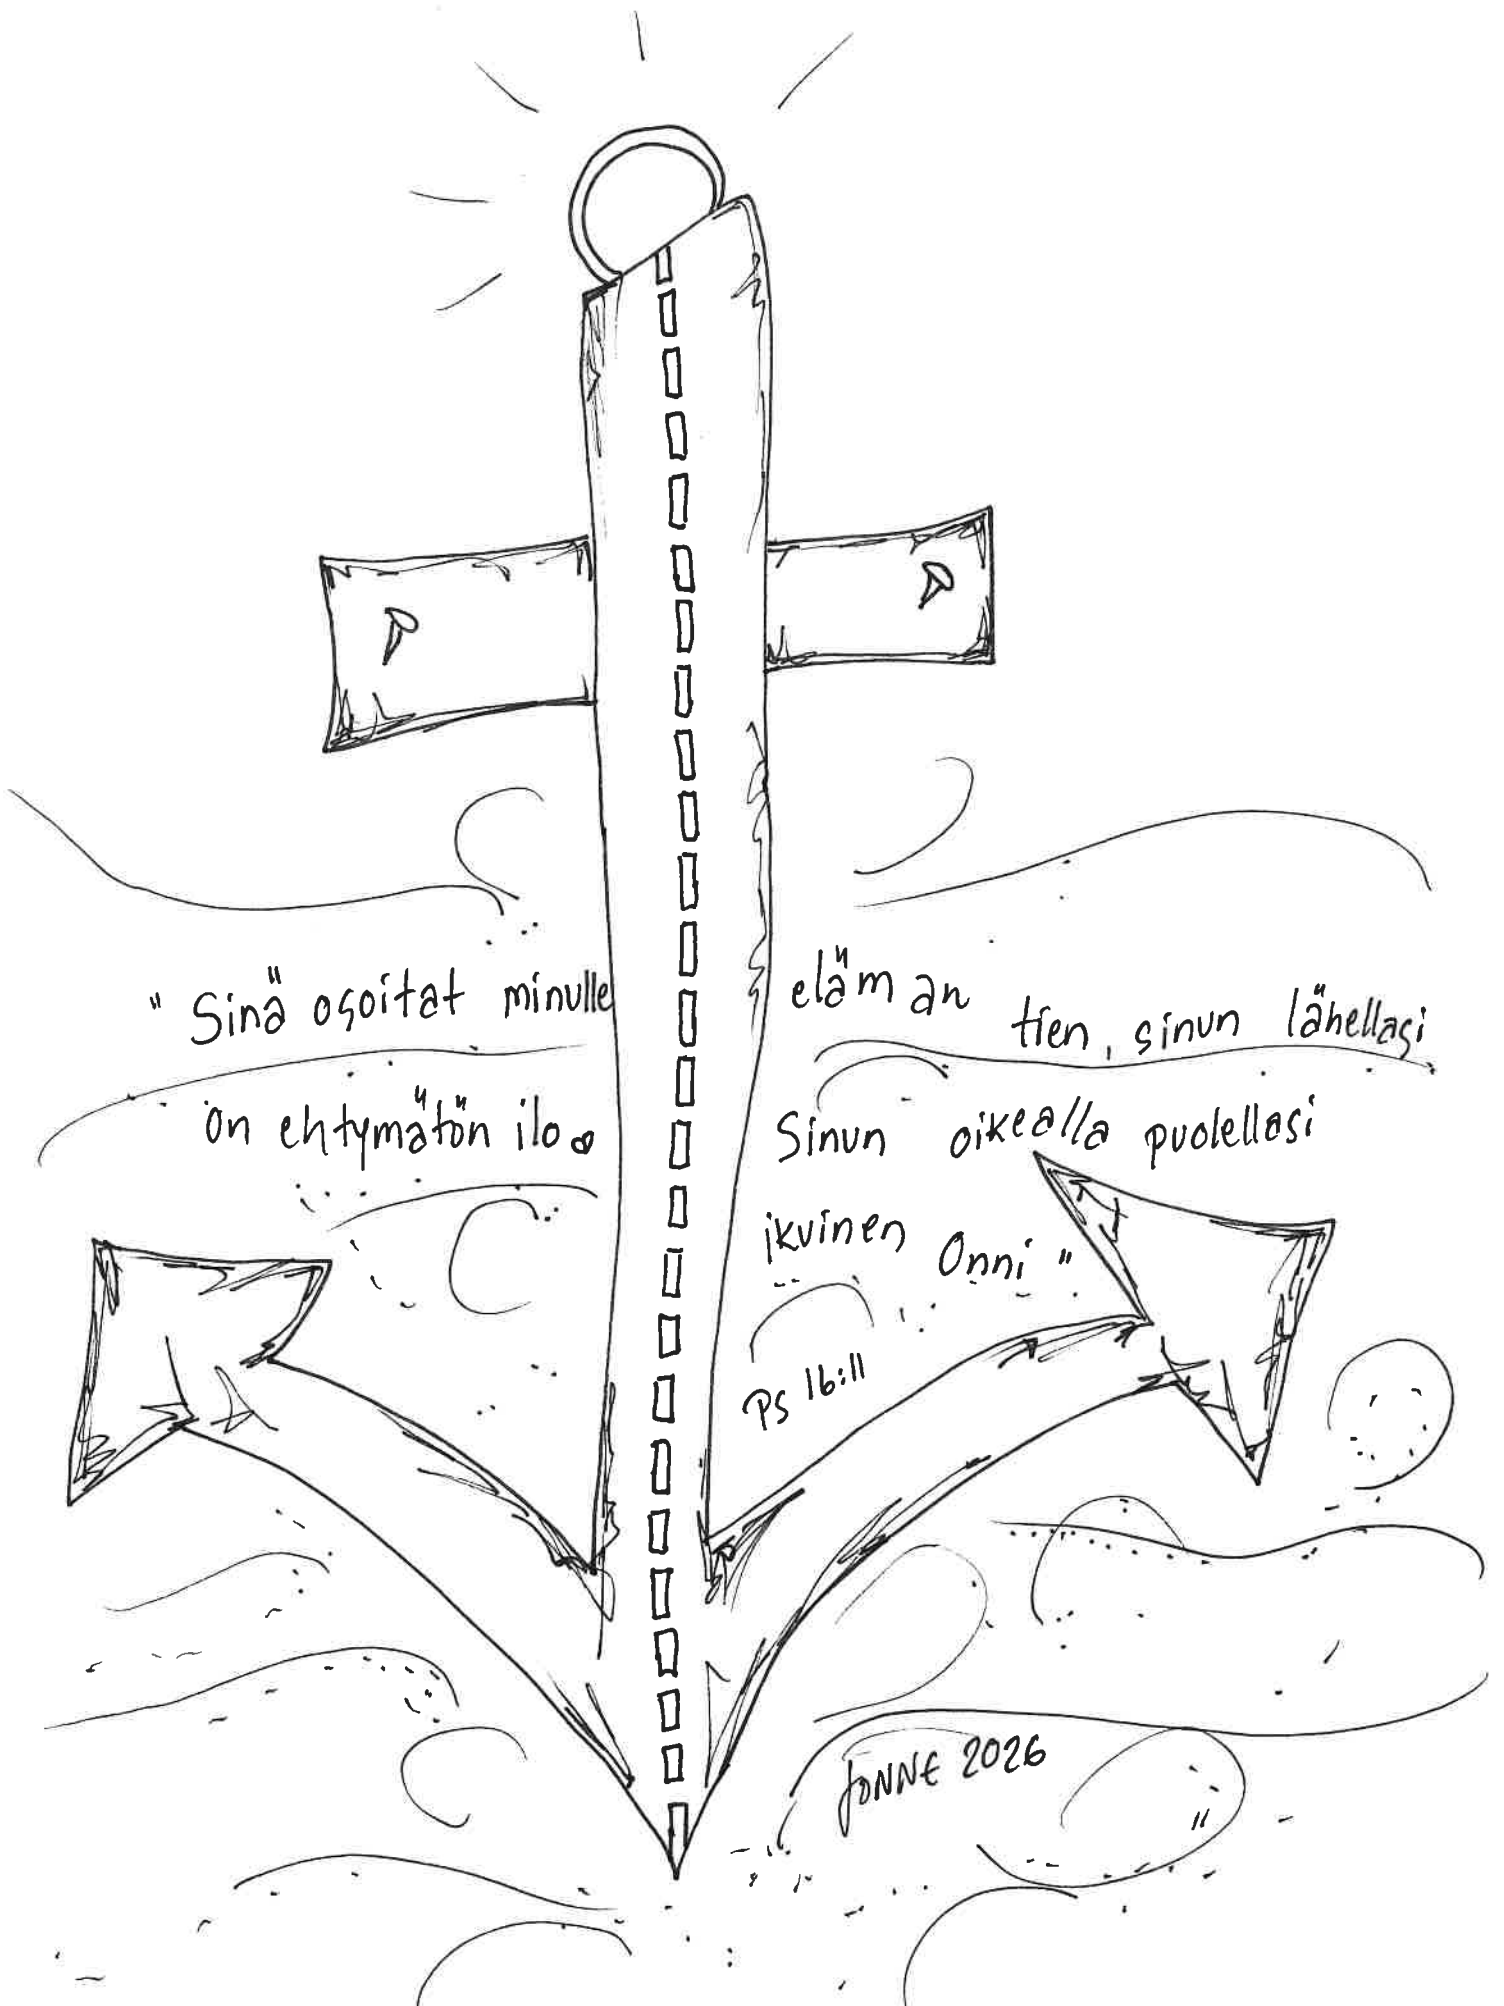 "Sinä osoitat minulle elämän tien, sinun lähelläsi
on ehtymätön ilo. Sinun oikealla puolellasi
ikuinen Onni"
Ps 16:11
JONNE 2026